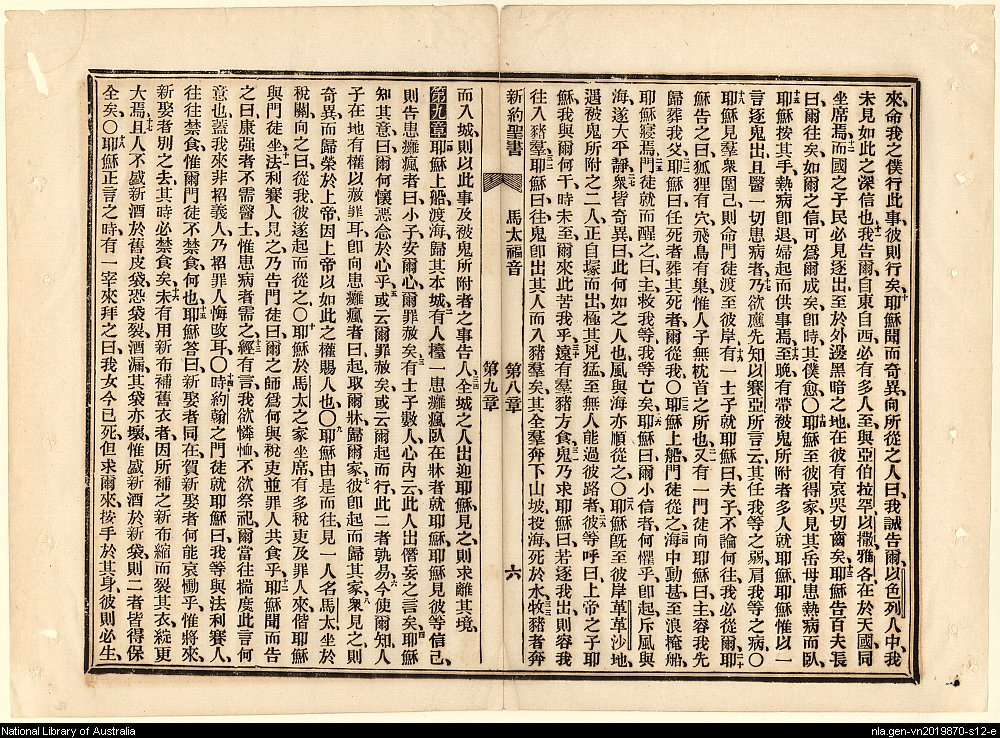 來、命我之僕行此事、彼則行矣、耶穌聞而奇異、向所從之人曰、我誠告爾、以色列人中、我
未見如此之深信也、我告爾、自東自西、必有多人至、與亞伯拉罕、以撒、雅各、在於天國同
坐席焉、而國之子民、必見逐出、至於外邊黑暗之地、在彼有哀哭切齒矣、耶穌告百夫長
曰、爾往矣、如爾之信、可爲爾成矣、卽時其僕愈、〇耶穌至彼得家、見其岳母患熱病而臥、
耶穌按其手、熱病卽退、婦起而供事焉、至晚、有帶被鬼所附者多人就耶穌、耶穌惟以一
言逐鬼出、且醫一切患病者、乃欲應先知以賽亞所言云、其任我等之弱、肩我等之病、〇
耶穌見羣衆圍己、則命門徒渡至彼岸、有一士子就耶穌曰、夫子、不論何往、我必從爾、耶
穌告之曰、狐狸有穴、飛鳥有巢、惟人子無枕首之所也、又有一門徒向耶穌曰、主、容我先
歸葬我父、耶穌曰、任死者葬其死者、爾從我、〇耶穌上船、門徒從之、海中動甚、至浪掩船、
耶穌寢焉、門徒就而醒之曰、主救我等、我等亡矣、耶穌曰、爾小信者、何懼乎、卽起斥風與
海、遂大平靜、衆皆奇異曰、此何如之人也、風與海亦順從之、〇耶穌旣至彼岸革革沙地、
遇被鬼所附之二人、正自塚而出、極其兇猛、至無人能過彼路者、彼等呼曰、上帝之子耶
穌、我與爾何干、時未至、爾來此苦我乎、遠有羣豬方食、鬼乃求耶穌曰、若逐我出、則容我
往入豬羣、耶穌曰、往、鬼卽出其人、而入豬羣矣、其全羣奔下山坡、投海、死於水、牧豬者奔
新約聖書 馬太福音 第八章 第九章 六
而入城、則以此事、及被鬼所附者之事告人、全城之人出迎耶穌、見之、則求離其境、
第九章 耶穌上船渡海、歸其本城、有人擡一患癱瘋臥在牀者就耶穌、耶穌見彼等信己、
則告患癱瘋者曰、小子安爾心、爾罪赦矣、有士子數人、心內云、此人出僭妄之言矣、耶穌
知其意、曰、爾何懷惡念於心乎、或云、爾罪赦矣、或云、爾起而行、此二者孰易、今使爾知人
子在地有權以赦罪耳、卽向患癱瘋者曰、起、取爾牀、歸爾家、彼卽起而歸其家、衆見之、則
奇異、而歸榮於上帝、因上帝以如此之權賜人也、〇耶穌由是而往、見一人名馬太、坐於
稅關、向之曰、從我、彼遂起而從之、〇耶穌於馬太之家坐席、有多稅吏及罪人來、偕耶穌
與門徒坐、法利賽人見之、乃告門徒曰、爾之師爲何與稅吏並罪人共食乎、耶穌聞而告
之曰、康強者不需醫士、惟患病者需之、經有言、我欲憐恤、不欲祭祀、爾當往揣度此言何
意也、蓋我來非招義人、乃招罪人悔改耳、〇時約翰之門徒就耶穌曰、我等與法利賽人、
往往禁食、惟爾門徒不禁食、何也、耶穌答曰、新娶者同在、賀新娶者何能哀慟乎、惟將來、
新娶者別之去、其時必禁食矣、未有用新布補舊衣者、因所補之新布縮、而裂其衣、綻更
大焉、且人不盛新酒於舊皮袋、恐袋裂、酒漏、其袋亦壞、惟盛新酒於新袋、則二者皆得保
全矣、〇耶穌正言之時、有一宰來拜之曰、我女今已死、但求爾來按手於其身、彼則必生、
National Library of Australia
nla.gen-vn2019870-s12-e